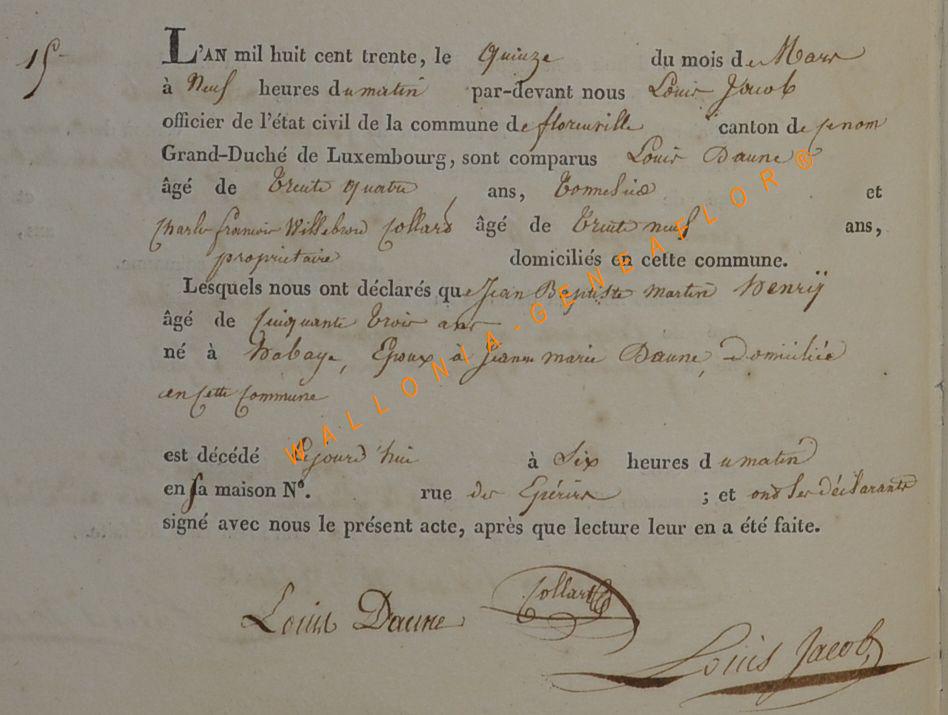 15
L'AN mil huit cent trente, le Quinze du mois de Mars
à Neuf heures du matin par-devant nous Louis Jacob
officier de l'état civil de la commune de florenville canton de ce nom
Grand-Duché de Luxembourg, sont comparus Louis Daune
âgé de trente quatre ans, et
Charle françois Willebrord Collard âgé de trente neuf ans,
proprietaire domiciliés en cette commune.
Lesquels nous ont déclarés que Jean Baptiste Martin Henrÿ
âgé de Cinquante trois ans
né à habaye, Epoux à Jeanne marie Daune, domiciliée
en Cette Commune
est décédé cejourd'hui à Six heures du matin
en sa maison N°. rue des ; et ont les déclarants
signé avec nous le présent acte, après que lecture leur en a été faite.
Louis Daune Collard
Louis Jacob
WALLONIA-GENEAFLOR®